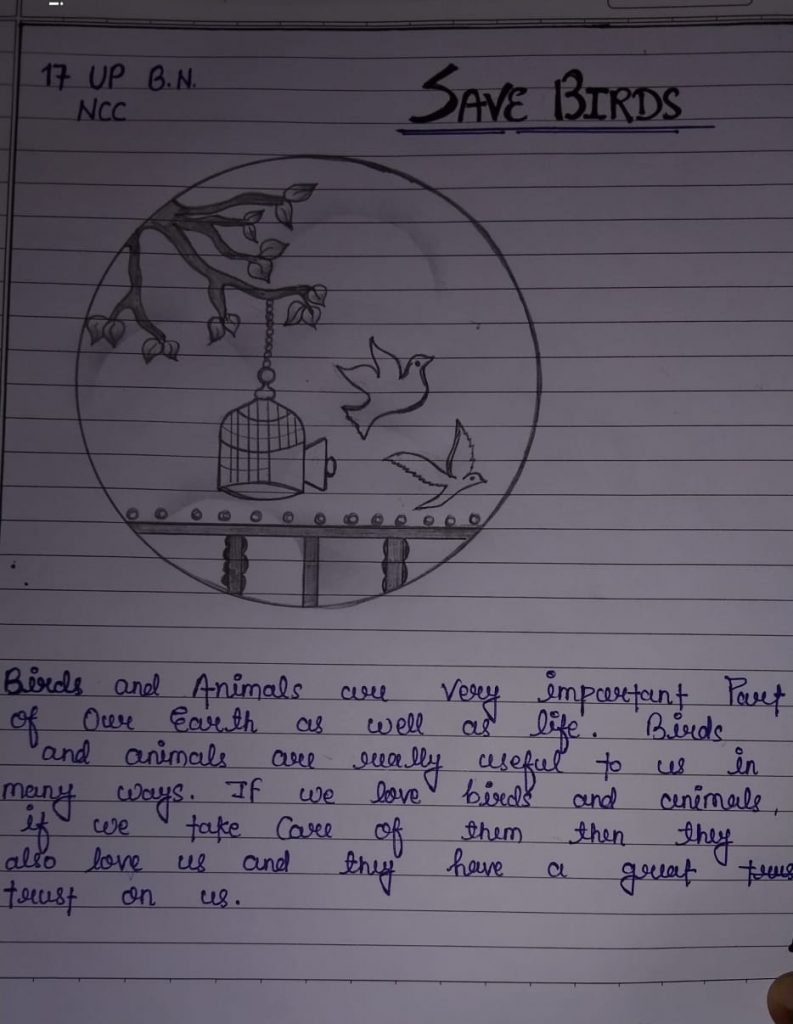 17 UP B.N.
NCC
SAVE BIRDS
Birds and Animals are very important Part
of Our Earth as well as life. Birds
and animals are really useful to us in
many ways. If we love birds and animals,
if we take Care of them then they
also love us and they have a great trus
trust on us.